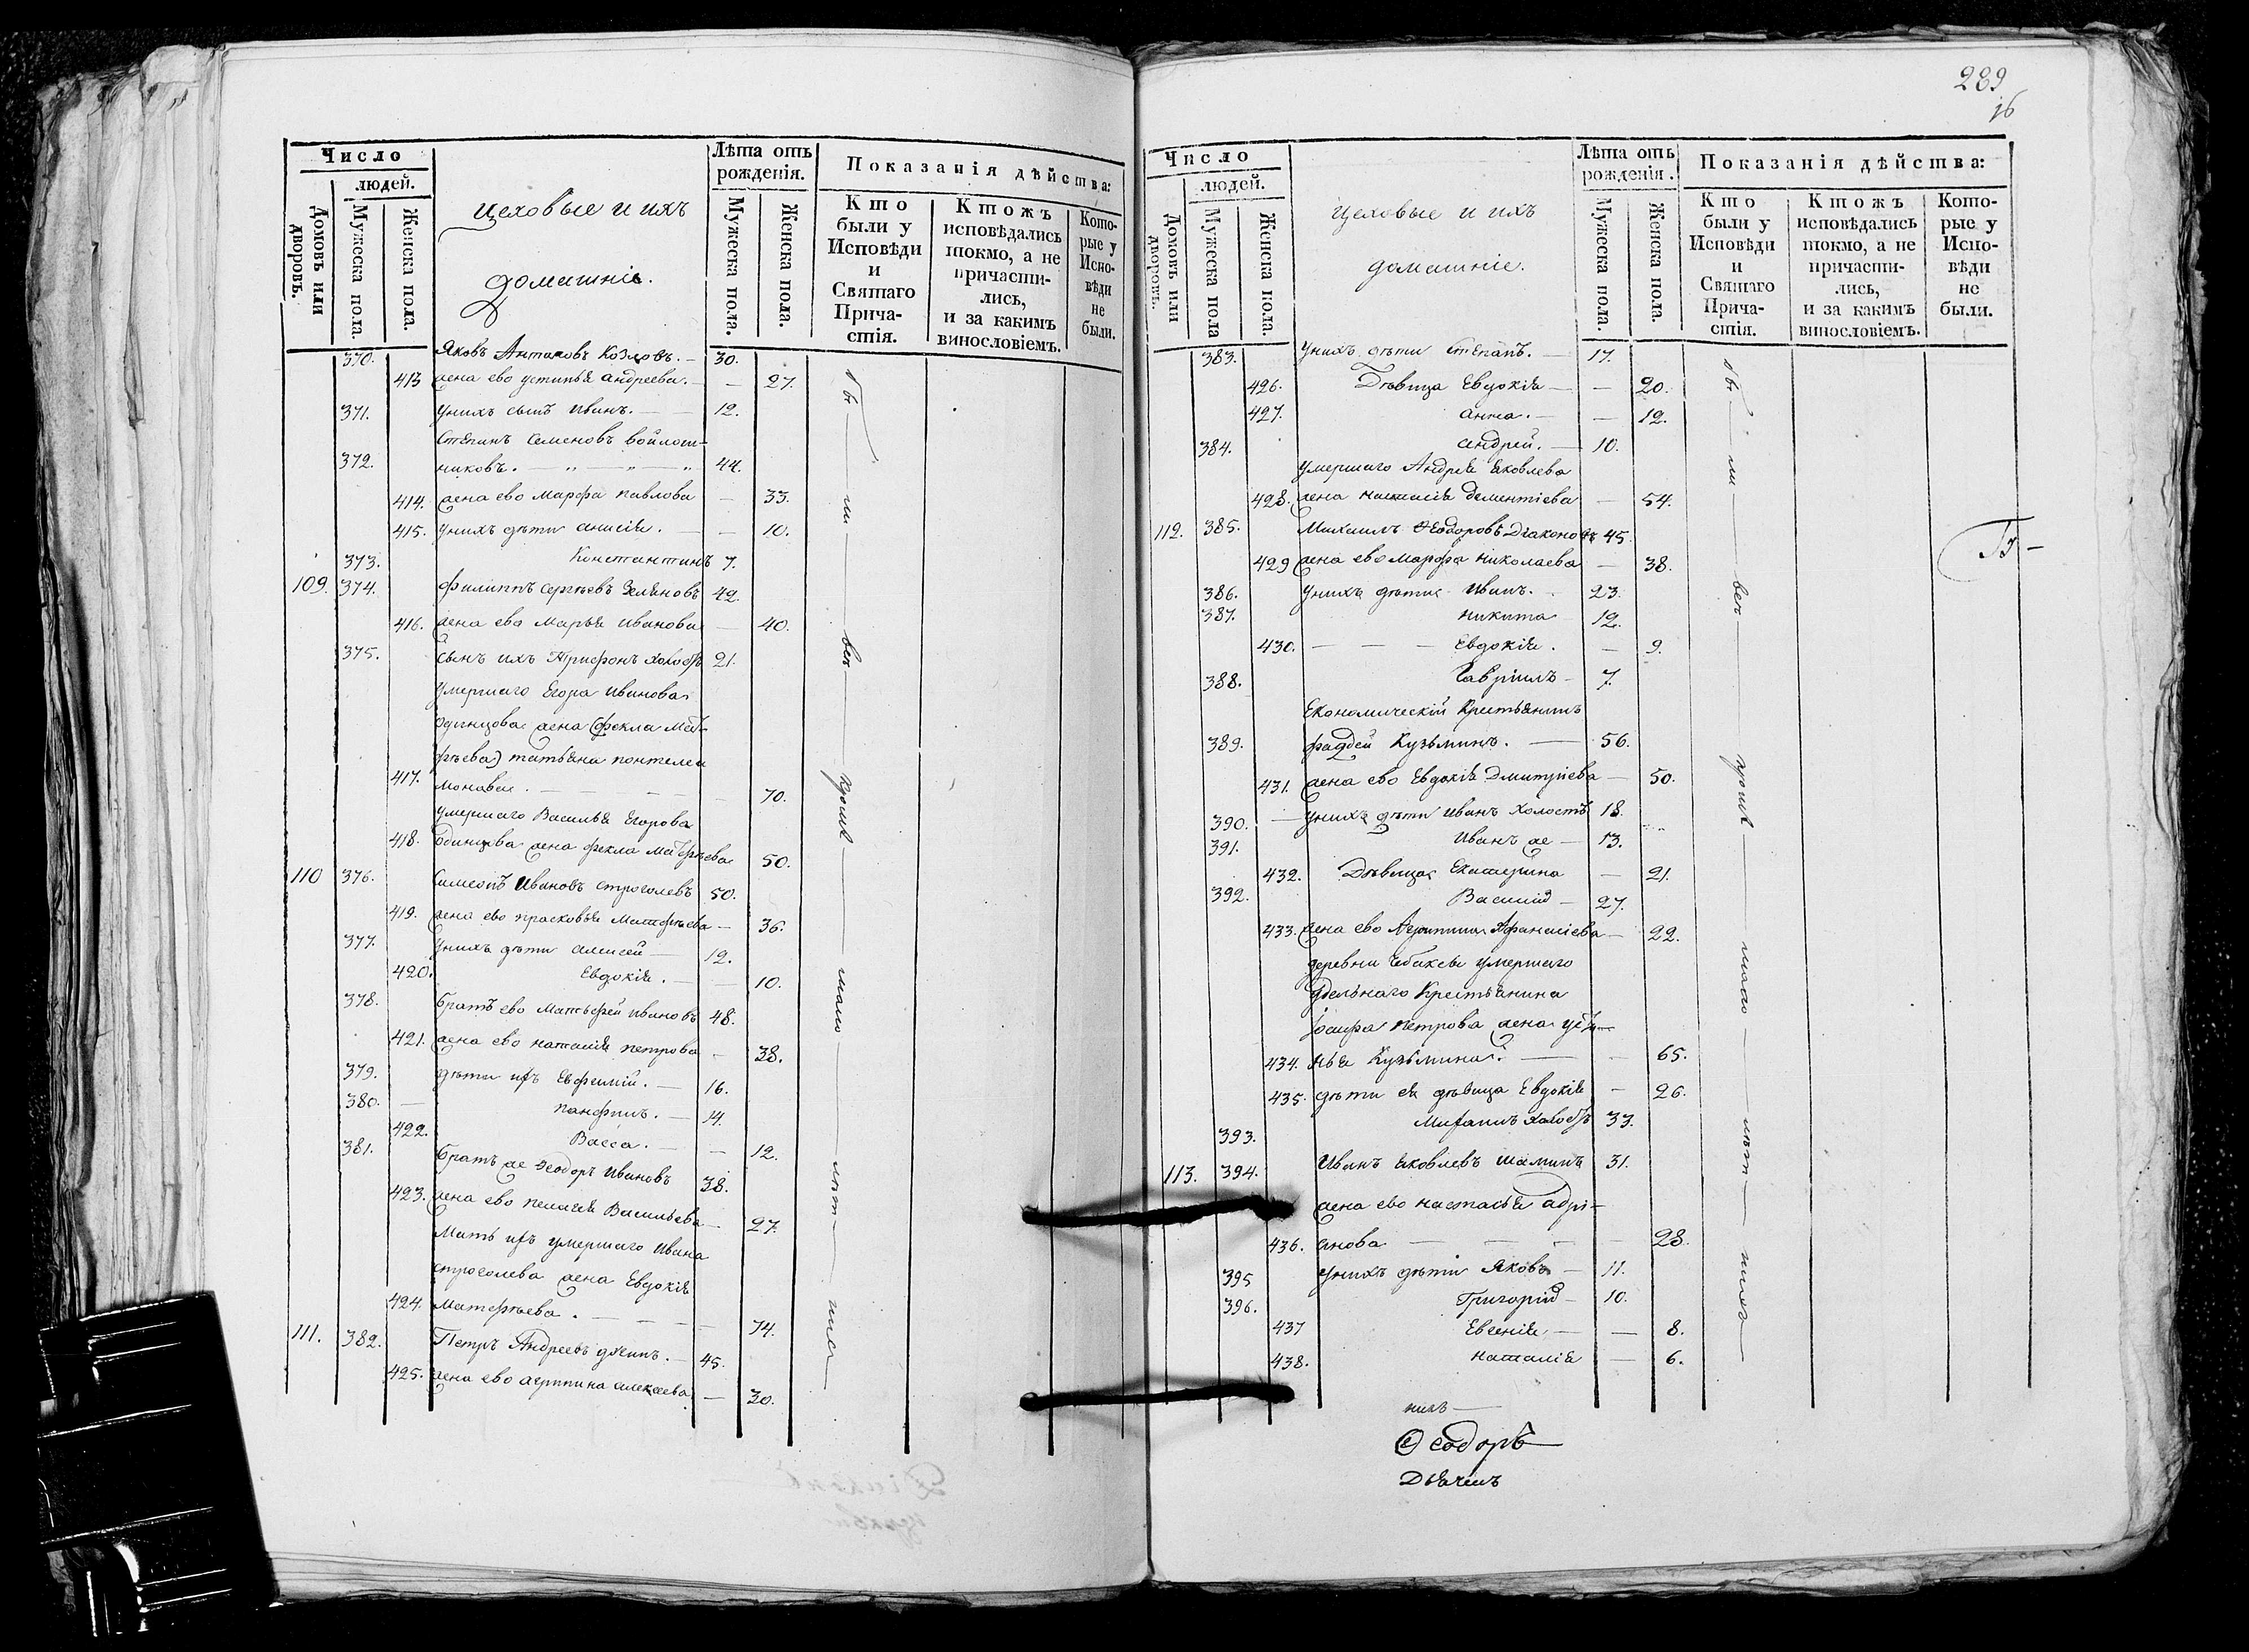 289
16
Число
людей.
Домовъ или дворовъ.
Мужеска пола.
Женска пола.
Цеховые и ихъ
домашніе.
Лѣта отъ рожденія.
Мужеска пола.
Женска пола.
Показанія дѣйства:
Кто были у Исповѣди и Святаго Причастія.
Ктожъ исповѣдались токмо, а не причастились, и за какимъ винословіемъ.
Которые у Исповѣди не были.
370. Яковъ Антиповъ Козловъ. — 30.
413 жена ево устинья андреева. — — 27.
371. Унихъ сынъ иванъ. — — 12.
Степанъ семеновъ войлош-
372. никовъ. — „ — „ — „ 44.
414. жена ево марфа павлова — 33.
415. унихъ дѣти анисія. — — 10.
373. Константинъ 7.
109. 374. филиппъ сергѣевъ 42.
416. жена ево марья иванова — 40.
375. сынъ ихъ трифонъ холостъ 21.
умершаго Егора иванова
одинцова жена (фекла мат-
фѣева) татьяна пантелеи
417. монова. — — — — 70.
умершаго Василья Егорова
418. одинцова жена фекла матфѣева 50.
110 376. Симеонъ Ивановъ строголевъ 50.
419. жена ево прасковья матфѣева — 36.
377. Унихъ дѣти алексей — 12.
420. Евдокія. — — 10.
378. братъ ево матьфей ивановъ 48.
421. жена ево наталія петрова — 38.
379. дѣти ихъ Евфимій. — 16.
380. — панфилъ. — 14.
422. Васса. — — 12.
381. братъ же Ѳеодоръ ивановъ 38.
423. жена ево пелагея Васильева — 27.
мать ихъ умершаго ивана
строголева жена Евдокія
424. матфѣева. — — — — 74.
111. 382. Петръ Андреевъ — 45.
425. жена ево агрипина алексеева — 30.
Число
людей.
Домовъ или дворовъ.
Мужеска пола
Женска пола.
Цеховые и ихъ
домашніе.
Лѣта отъ рожденія.
Мужеска пола.
Женска пола.
Показанія дѣйства:
Кто были у Исповѣди и Святаго Причастія.
Ктожъ исповѣдались токмо, а не причастились, и за какимъ винословіемъ.
Которые у Исповѣди не были.
383. Унихъ дѣти Степанъ. — 17.
426. Дѣвица Евдокія — — 20.
427. анна. — — 12.
384. андрей. — 10.
умершаго Андрея яковлева
428. жена настасія дементіева — 54.
112. 385. Михаилъ Ѳеодоровъ Дьяконовъ 45.
429 жена ево марфа николаева — 38.
386. унихъ дѣти иванъ. 23.
387. никита 12.
430. — — — Евдокія. — 9.
388. Гавріилъ — 7.
Економическій крестьянинъ
389. фаддей Кузьминъ. — 56.
431. жена ево Евдокія Дмитріева — 50.
390. — унихъ дѣти иванъ холостъ 18.
391. иванъ же — 13.
432. Дѣвица Екатерина — 21.
392. Василій — 27.
433. жена ево Агрипина Афанасіева — 22.
деревни умершаго
удельнаго крестьянина
Іосифа петрова жена усти-
434. нья Кузьмина. — — 65.
435. дѣти ея дѣвица Евдокія — 26.
393. Михаилъ холостъ 33.
113. 394. иванъ яковлевъ шаминъ 31.
жена ево настасья адрі-
436. анова — — — — 28.
395 Унихъ дѣти Яковъ — 11.
396. Григорій — 10.
437 Евгенія, — — 8.
438. наталія — 6.
Ѳеодоръ